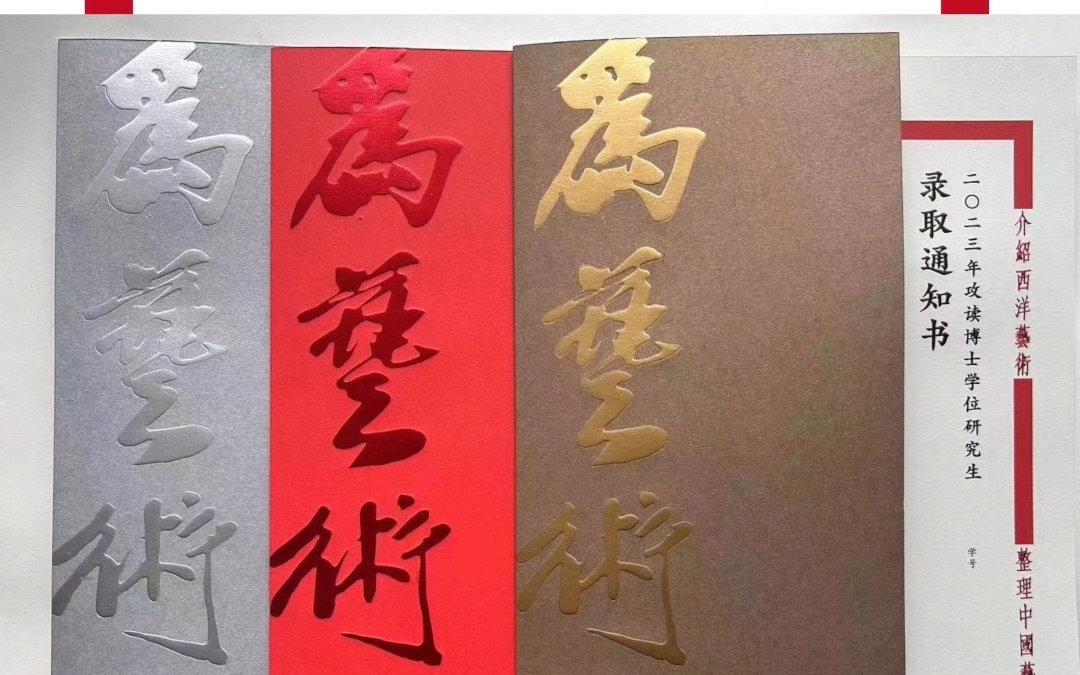 為藝術
為藝術
為藝術
介紹西洋藝術
整理中國藝
二〇二三年攻读博士学位研究生
录取通知书
学号